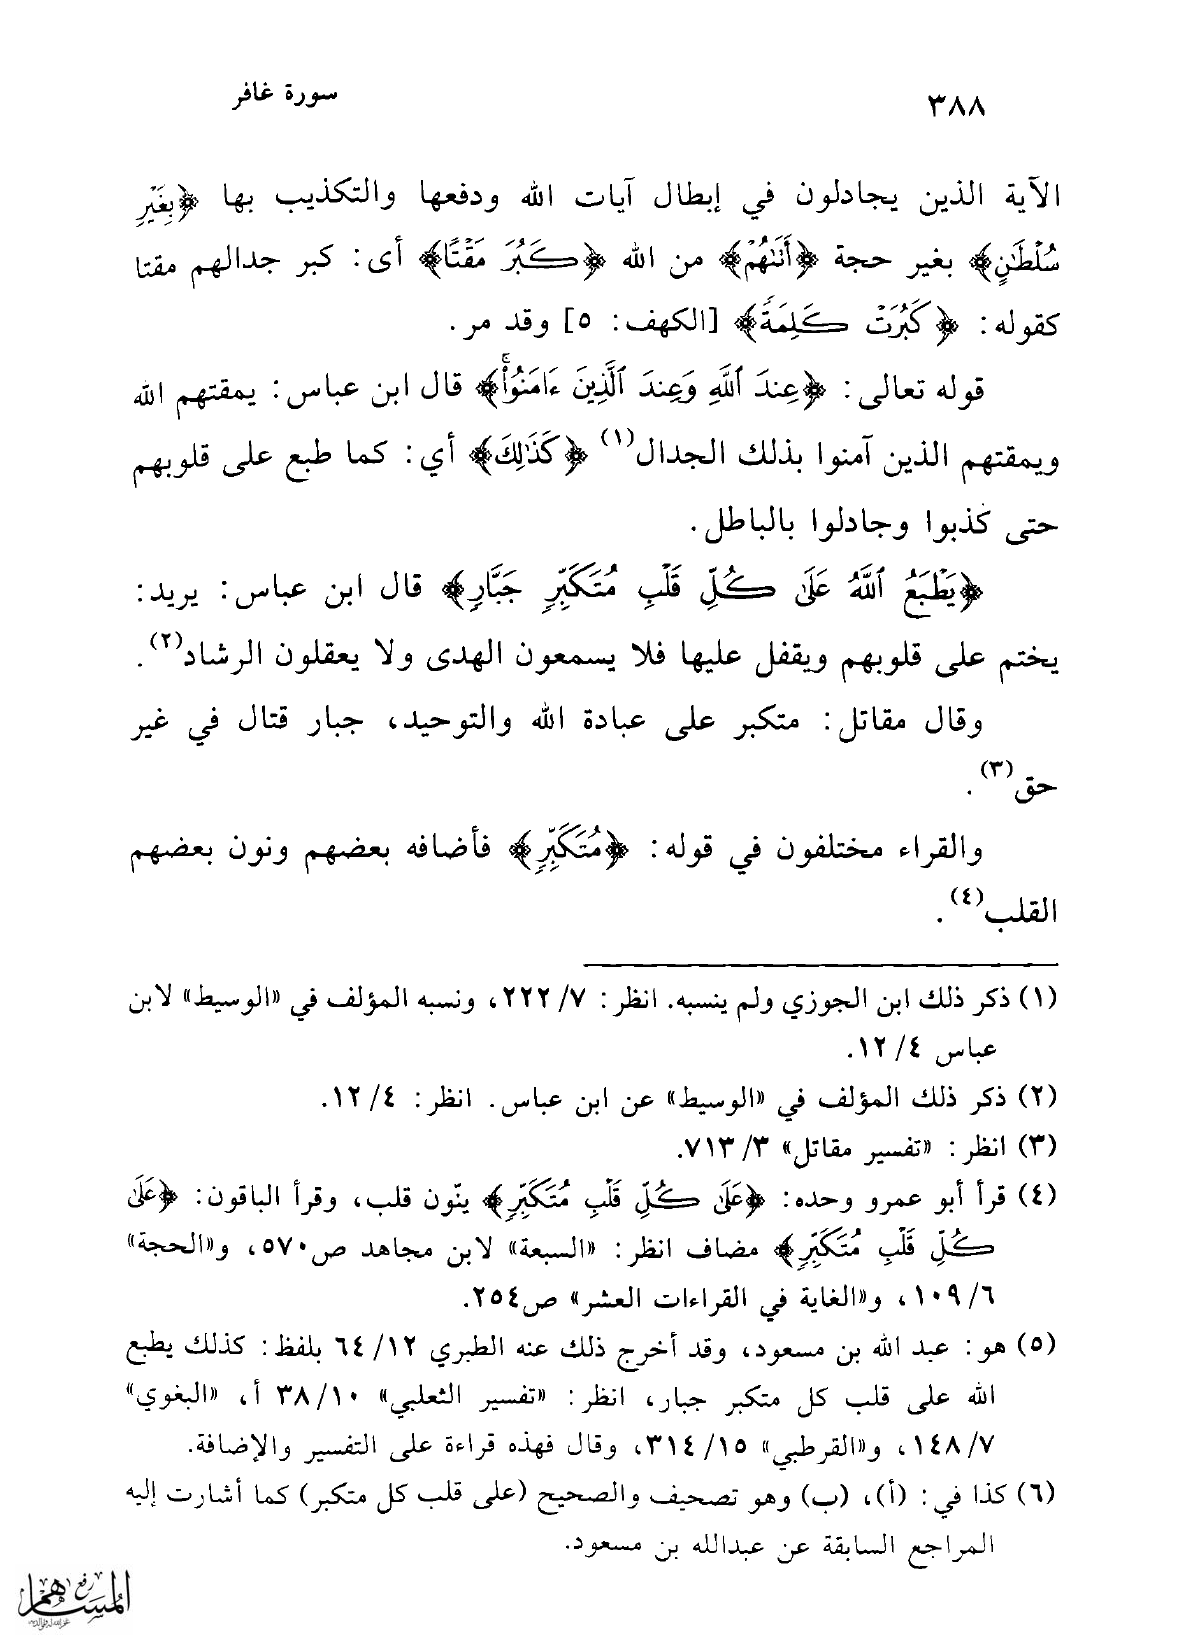 ٣٨٨
سورة غافر
الآية الذين يجادلون في إبطال آيات الله ودفعها والتكذيب بها ﴿بِغَيْرِ
سُلْطَٰنٍ﴾ بغير حجة ﴿أَتَىٰهُمْ﴾ من الله ﴿كَبُرَ مَقْتًا﴾ أى: كبر جدالهم مقتا
كقوله: ﴿كَبُرَتْ كَلِمَةً﴾ [الكهف: ٥] وقد مر.
قوله تعالى: ﴿عِندَ ٱللَّهِ وَعِندَ ٱلَّذِينَ ءَامَنُوا۟ۚ﴾ قال ابن عباس: يمقتهم الله
ويمقتهم الذين آمنوا بذلك الجدال(١) ﴿كَذَٰلِكَ﴾ أي: كما طبع على قلوبهم
حتى كذبوا وجادلوا بالباطل.
﴿يَطْبَعُ ٱللَّهُ عَلَىٰ كُلِّ قَلْبِ مُتَكَبِّرٍ جَبَّارٍ﴾ قال ابن عباس: يريد:
يختم على قلوبهم ويقفل عليها فلا يسمعون الهدى ولا يعقلون الرشاد(٢).
وقال مقاتل: متكبر على عبادة الله والتوحيد، جبار قتال في غير
حق(٣).
والقراء مختلفون في قوله: ﴿مُتَكَبِّرٍ﴾ فأضافه بعضهم ونون بعضهم
القلب(٤).
(١) ذكر ذلك ابن الجوزي ولم ينسبه. انظر: ٧/ ٢٢٢، ونسبه المؤلف في «الوسيط» لابن
عباس ٤/ ١٢.
(٢) ذكر ذلك المؤلف في «الوسيط» عن ابن عباس. انظر: ٤/ ١٢.
(٣) انظر: «تفسير مقاتل» ٣/ ٧١٣.
(٤) قرأ أبو عمرو وحده: ﴿عَلَىٰ كُلِّ قَلْبِ مُتَكَبِّرٍ﴾ ينّون قلب، وقرأ الباقون: ﴿عَلَىٰ
كُلِّ قَلْبِ مُتَكَبِّرٍ﴾ مضاف انظر: «السبعة» لابن مجاهد ص٥٧٠، و«الحجة»
٦/ ١٠٩، و«الغاية في القراءات العشر» ص٢٥٤.
(٥) هو: عبد الله بن مسعود، وقد أخرج ذلك عنه الطبري ١٢/ ٦٤ بلفظ: كذلك يطبع
الله على قلب كل متكبر جبار، انظر: «تفسير الثعلبي» ١٠/ ٣٨ أ، «البغوي»
٧/ ١٤٨، و«القرطبي» ١٥/ ٣١٤، وقال فهذه قراءة على التفسير والإضافة.
(٦) كذا في: (أ)، (ب) وهو تصحيف والصحيح (على قلب كل متكبر) كما أشارت إليه
المراجع السابقة عن عبدالله بن مسعود.